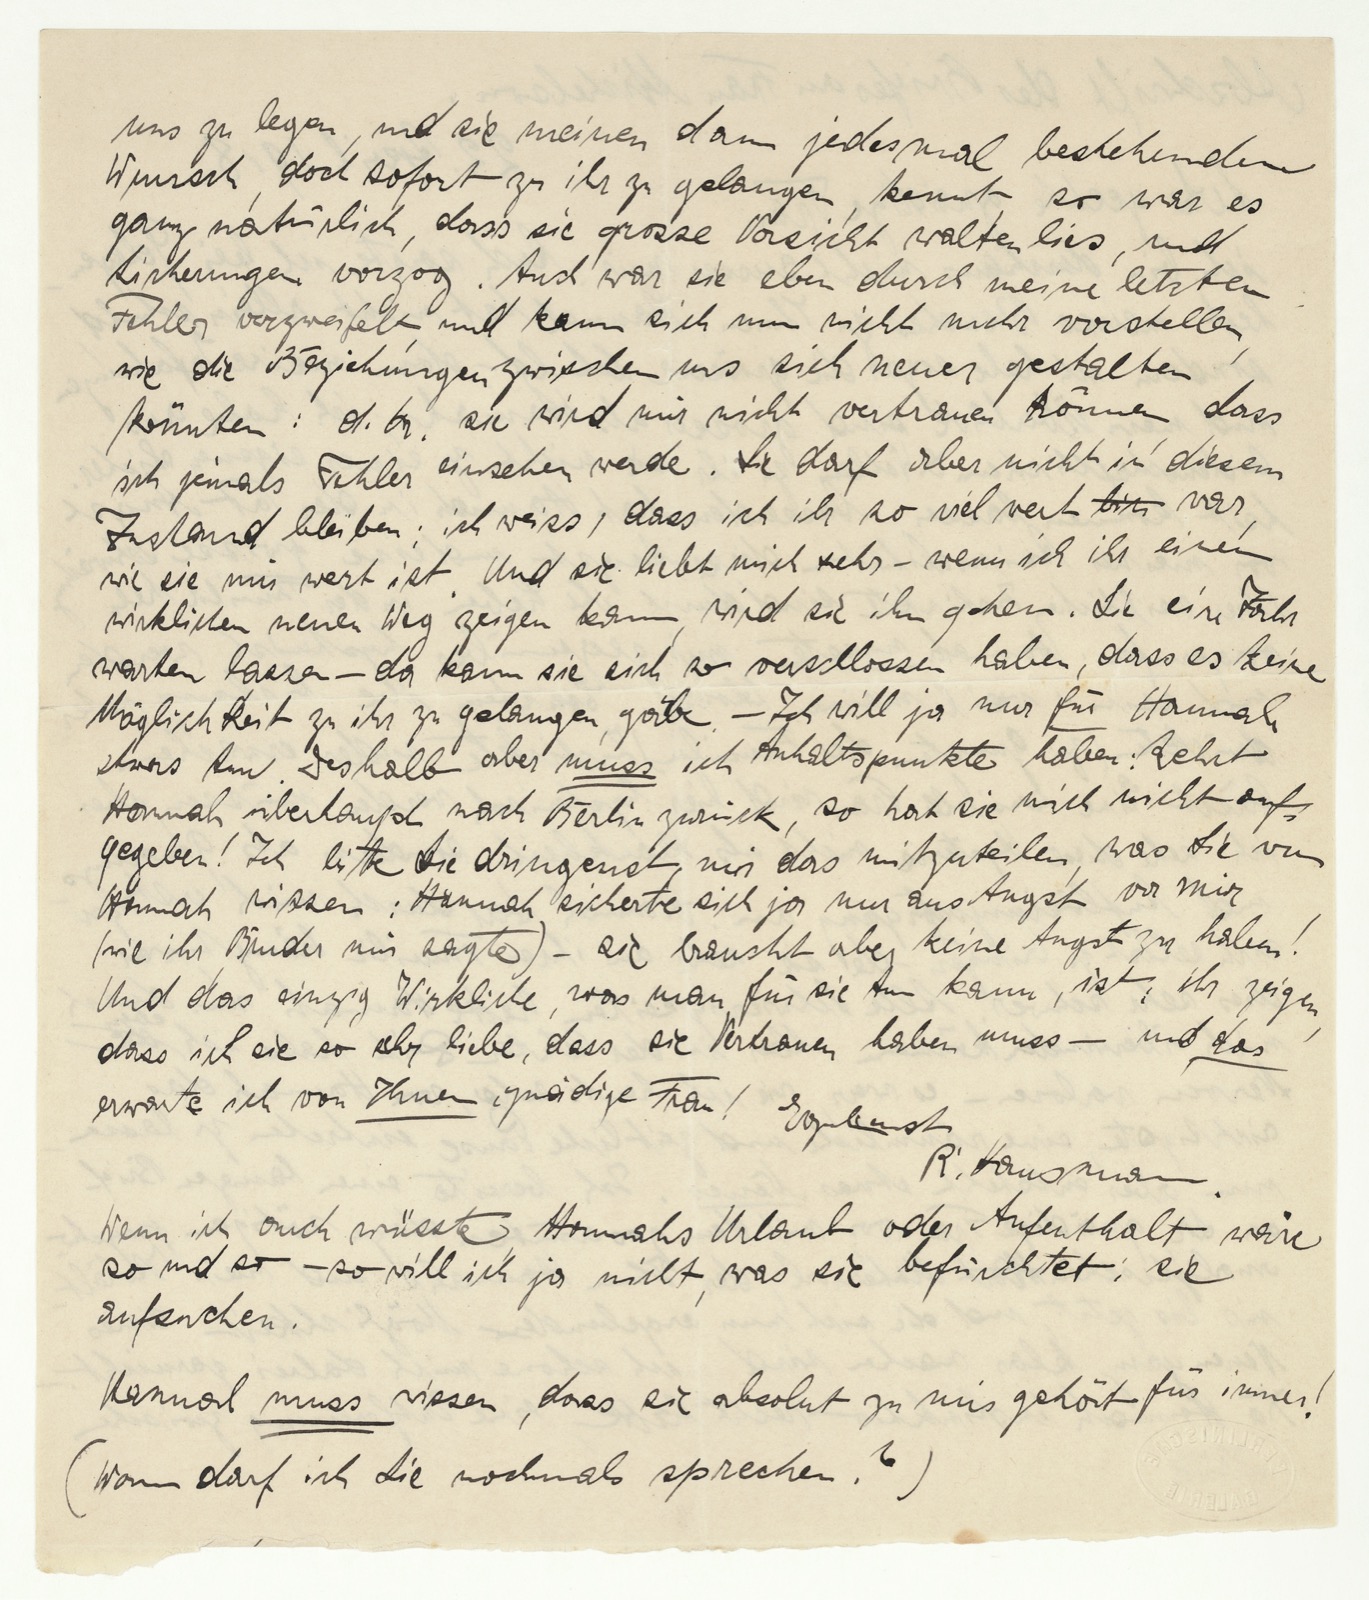 uns zu legen, und sie meinen dann jedesmal bestehenden
Wunsch, doch sofort zu ihr zu gelangen, kennt, so war es
ganz natürlich, dass sie grosse Vorsicht walten lies, und
Sicherungen vorzog. Auch war sie eben durch meine letzten
Fehler verzweifelt, und kann sich nun nicht mehr vorstellen,
wie die Beziehungen zwischen uns sich neuer gestalten
könnten: d. h. sie wird mir nicht vertrauen können dass
ich jemals Fehler einsehen werde. Sie darf aber nicht in diesem
Zustand bleiben; ich weiss, dass ich ihr so viel wert bin war,
wie sie mir wert ist. Und sie liebt mich sehr – wenn ich ihr einen
wirklichen neuen Weg zeigen kann, wird sie ihn gehen. Sie ein Jahr
warten lassen – da kann sie sich so verschlossen haben, dass es keine
Möglichkeit zu ihr zu gelangen, gäbe. – Ich will ja nur für Hannah
etwas tun. Deshalb aber muss ich Anhaltspunkte haben: kehrt
Hannah überhaupt nach Berlin zurück, so hat sie mich nicht auf-
gegeben! Ich bitte Sie dringenst, mir das mitzuteilen, was Sie von
Hannah wissen; Hannah sicherte sich ja nur aus Angst vor mir
(wie ihr Bruder mir sagte) – sie braucht aber keine Angst zu haben!
Und das einzig Wirkliche, was man für sie tun kann, ist: ihr zeigen,
dass ich sie so sehr liebe, dass sie Vertrauen haben muss – und das
erwarte ich von Ihnen, gnädige Frau!
Ergebenst
R. Hausmann.
Wenn ich auch wüsste Hannahs Urlaub oder Aufenthalt wäre
so und so – so will ich ja nicht, was sie befürchtet: sie
aufsuchen.
Hannah muss wissen, dass sie absolut zu mir gehört für immer!
(Wann darf ich Sie nochmals sprechen?)
BERLINISCHE GALERIE